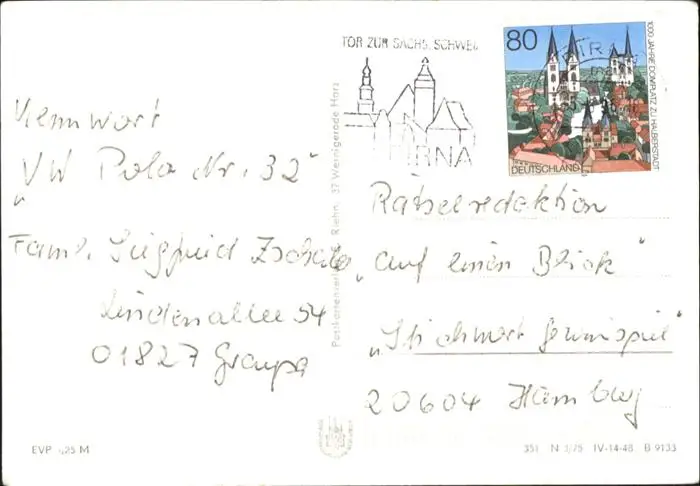 TOR ZUR SÄCHS. SCHWEI
PIRNA
80
DEUTSCHLAND
1000 JAHRE DOMPLATZ ZU HALBERSTADT
Kennwort
"VW Polo Nr. 32"
Fam. Siegfried
Lindenallee 54
01827 Graupa
Rätselredaktion
"auf einen Blick"
"Stichwort Gewinnspiel"
20604 Hamburg
37 Wernigerode Harz
EVP -,25 M
351 N 3/75 IV-14-48 B 9133